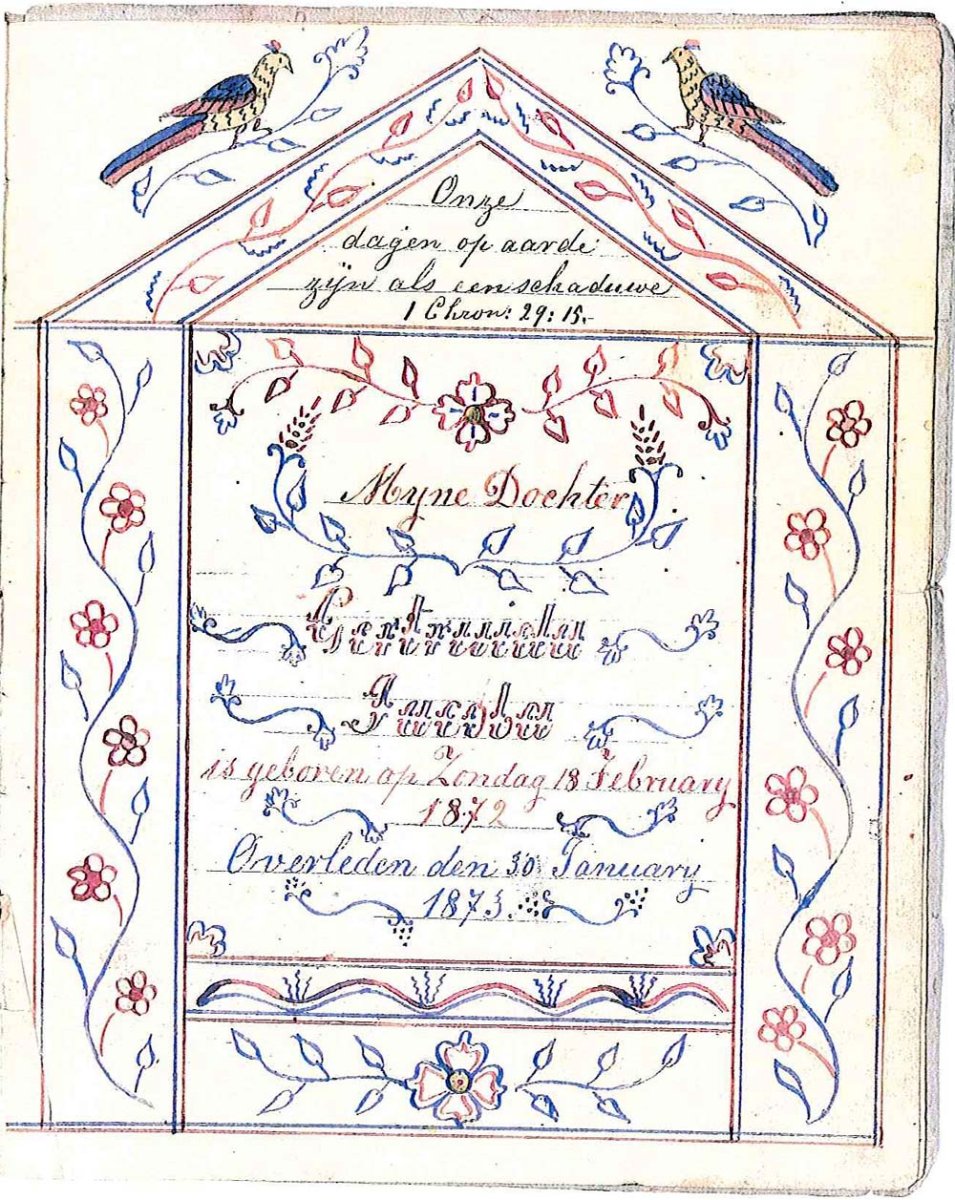 Onze
dagen op aarde
zijn als een schaduwe
1 Chron: 29: 15.-
Myne Dochter
is geboren op Zondag 18 February
1872
Overleden den 30 January
1873.